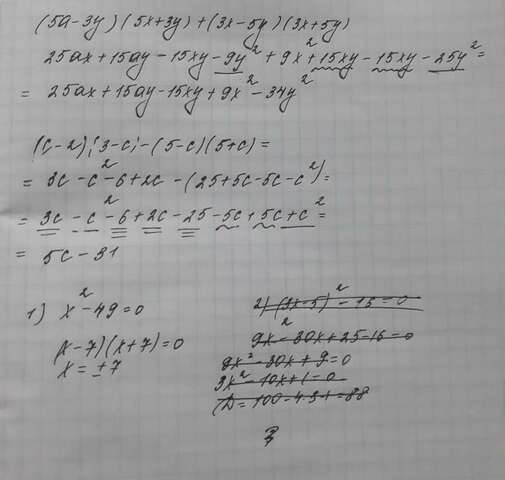 (5a-3y)(5x+3y)+(3x-5y)(3x+5y)
25ax+15ay-15xy-9y²+9x²+15xy-15xy-25y²=
= 25ax+15ay-15xy+9x²-34y²
(c-2)(3-c)-(5-c)(5+c)=
= 3c-c²-6+2c-(25+5c-5c-c²)=
= 3c-c²-6+2c-25-5c+5c+c²=
= 5c-31
1) x²-49=0
(x-7)(x+7)=0
x=±7
2) (3x-5)²-16=0
9x²-30x+25-16=0
9x²-30x+9=0
3x²-10x+1=0